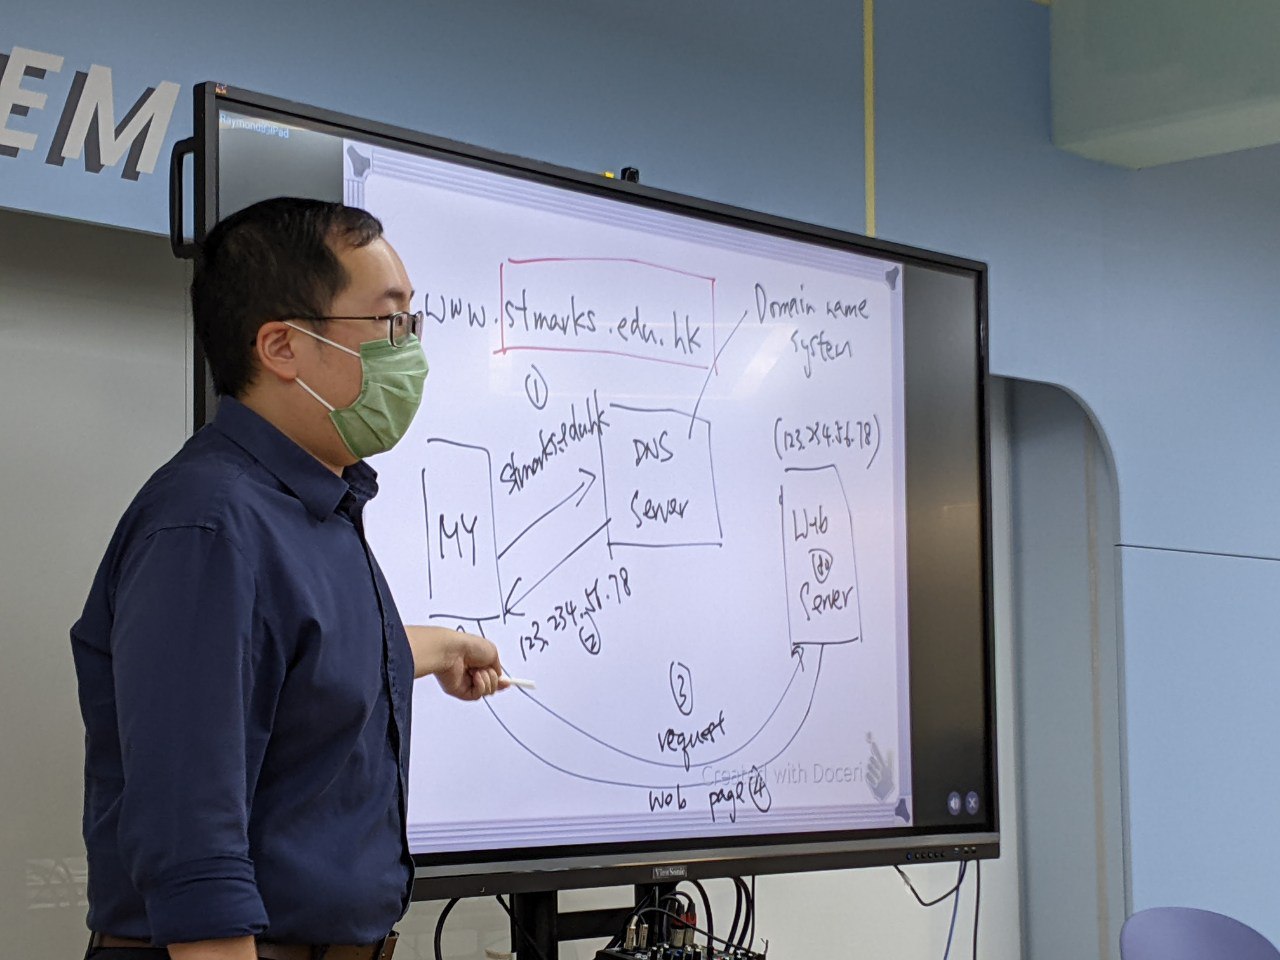 EM
Raymond的iPad
www.stmarks.edu.hk
Domain name
system
①
stmarks.edu.hk
DNS
Server
(123.234.56.78)
MY
Web
80
Server
123.234.56.78
②
③
request
Created with Doceri
web page ④
ViewSonic